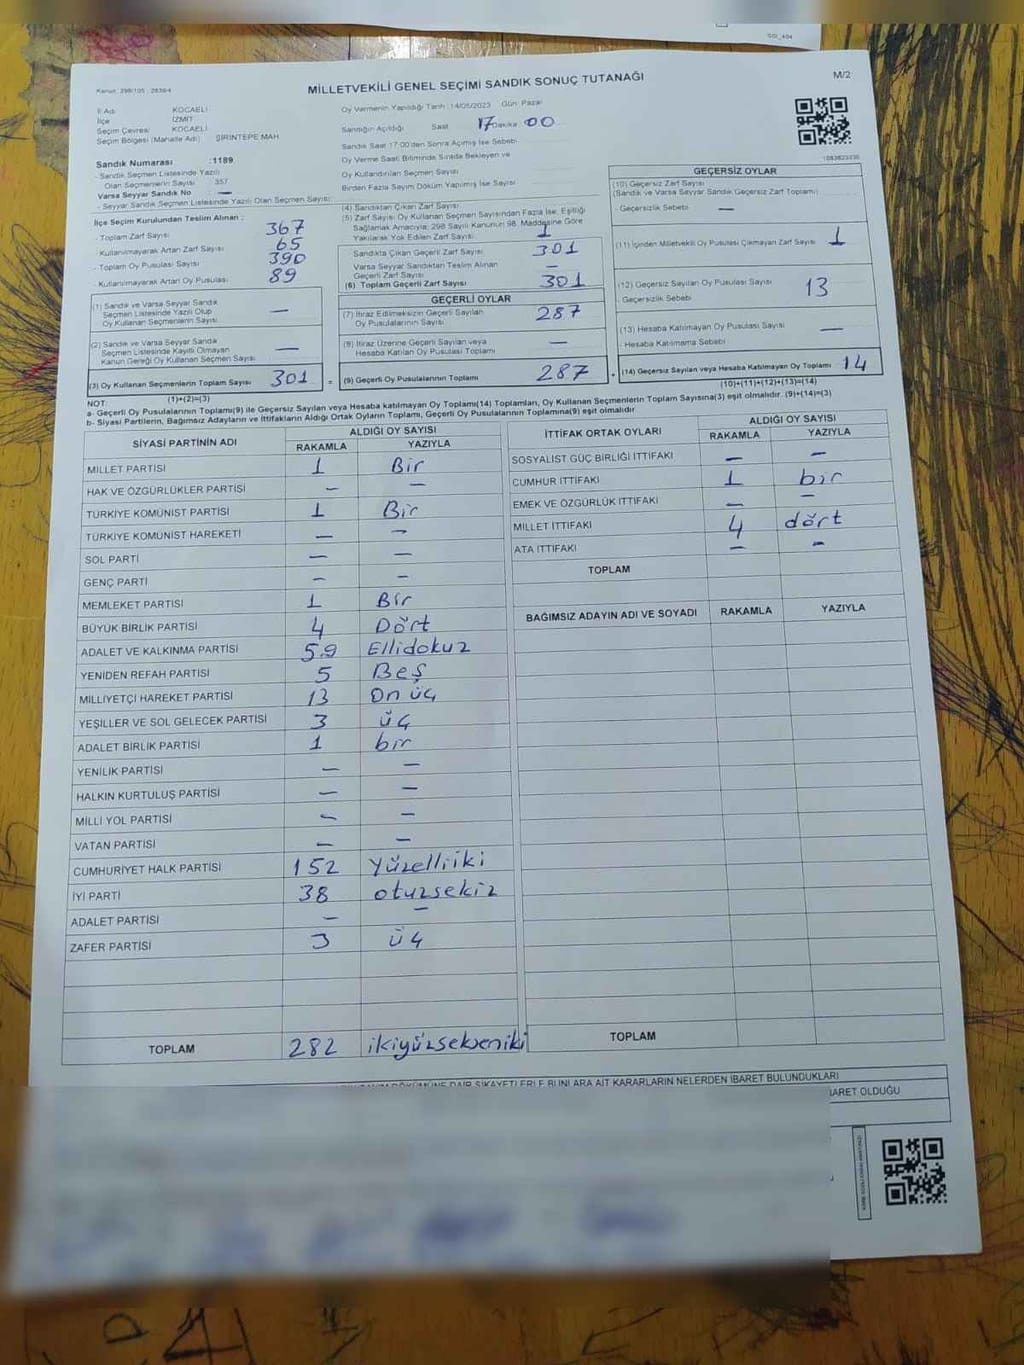 GGI_404
Kanun: 298/105 ; 2839/4
MİLLETVEKİLİ GENEL SEÇİMİ SANDIK SONUÇ TUTANAĞI
M/2
İl Adı: KOCAELİ
İlçe İZMİT
Seçim Çevresi: KOCAELİ
Seçim Bölgesi (Mahalle Adı) ŞİRİNTEPE MAH
Sandık Numarası :1189
- Sandık Seçmen Listesinde Yazılı
Olan Seçmenlerin Sayısı 357
Varsa Seyyar Sandık No —
- Seyyar Sandık Seçmen Listesinde Yazılı Olan Seçmen Sayısı
Oy Vermenin Yapıldığı Tarih :14/05/2023 Gün: Pazar
Sandığın Açıldığı Saat 17 Dakika 00
Sandık Saat 17:00'den Sonra Açılmış İse Sebebi
Oy Verme Saati Bitiminde Sırada Bekleyen ve
Oy Kullandırılan Seçmen Sayısı
Birden Fazla Sayım Döküm Yapılmış İse Sayısı
İlçe Seçim Kurulundan Teslim Alınan ;
- Toplam Zarf Sayısı 367
- Kullanılmayarak Artan Zarf Sayısı 65
- Toplam Oy Pusulası Sayısı 390
- Kullanılmayarak Artan Oy Pusulası 89
(1) Sandık ve Varsa Seyyar Sandık
Seçmen Listesinde Yazılı Olup
Oy Kullanan Seçmenlerin Sayısı —
(2) Sandık ve Varsa Seyyar Sandık
Seçmen Listesinde Kayıtlı Olmayan
Kanun Gereği Oy Kullanan Seçmen Sayısı —
(3) Oy Kullanan Seçmenlerin Toplam Sayısı 301 =
(1)+(2)=(3)
(4) Sandıktan Çıkan Zarf Sayısı
(5) Zarf Sayısı Oy Kullanan Seçmen Sayısından Fazla İse, Eşitliği
Sağlamak Amacıyla; 298 Sayılı Kanunun 98. Maddesine Göre
Yakılarak Yok Edilen Zarf Sayısı 1
Sandıkta Çıkan Geçerli Zarf Sayısı 301
Varsa Seyyar Sandıktan Teslim Alınan
Geçerli Zarf Sayısı —
(6) Toplam Geçerli Zarf Sayısı 301
GEÇERLİ OYLAR
(7) İtiraz Edilmeksizin Geçerli Sayılan
Oy Pusulalarının Sayısı 287
(8) İtiraz Üzerine Geçerli Sayılan veya
Hesaba Katılan Oy Pusulası Toplamı —
(9) Geçerli Oy Pusulalarının Toplamı 287 +
GEÇERSİZ OYLAR
(10) Geçersiz Zarf Sayısı
(Sandık ve Varsa Seyyar Sandık Geçersiz Zarf Toplamı)
- Geçersizlik Sebebi —
(11) İçinden Milletvekili Oy Pusulası Çıkmayan Zarf Sayısı 1
(12) Geçersiz Sayılan Oy Pusulası Sayısı 13
- Geçersizlik Sebebi
(13) Hesaba Katılmayan Oy Pusulası Sayısı —
- Hesaba Katılmama Sebebi
(14) Geçersiz Sayılan veya Hesaba Katılmayan Oy Toplamı 14
(10)+(11)+(12)+(13)=(14)
NOT:
a- Geçerli Oy Pusulalarının Toplamı(9) ile Geçersiz Sayılan veya Hesaba katılmayan Oy Toplamı(14) Toplamları, Oy Kullanan Seçmenlerin Toplam Sayısına(3) eşit olmalıdır. (9)+(14)=(3)
b- Siyasi Partilerin, Bağımsız Adayların ve İttifakların Aldığı Ortak Oyların Toplamı, Geçerli Oy Pusulalarının Toplamına(9) eşit olmalıdır
SİYASİ PARTİNİN ADI ALDIĞI OY SAYISI
RAKAMLA YAZIYLA
MİLLET PARTİSİ 1 Bir
HAK VE ÖZGÜRLÜKLER PARTİSİ — —
TÜRKİYE KOMÜNİST PARTİSİ 1 Bir
TÜRKİYE KOMÜNİST HAREKETİ — —
SOL PARTİ — —
GENÇ PARTİ — —
MEMLEKET PARTİSİ 1 Bir
BÜYÜK BİRLİK PARTİSİ 4 Dört
ADALET VE KALKINMA PARTİSİ 59 Ellidokuz
YENİDEN REFAH PARTİSİ 5 Beş
MİLLİYETÇİ HAREKET PARTİSİ 13 On üç
YEŞİLLER VE SOL GELECEK PARTİSİ 3 üç
ADALET BİRLİK PARTİSİ 1 bir
YENİLİK PARTİSİ — —
HALKIN KURTULUŞ PARTİSİ — —
MİLLİ YOL PARTİSİ — —
VATAN PARTİSİ — —
CUMHURİYET HALK PARTİSİ 152 Yüzelliiki
İYİ PARTİ 38 otuzsekiz
ADALET PARTİSİ — —
ZAFER PARTİSİ 3 üç
TOPLAM 282 ikiyüzsekseniki
İTTİFAK ORTAK OYLARI ALDIĞI OY SAYISI
RAKAMLA YAZIYLA
SOSYALİST GÜÇ BİRLİĞİ İTTİFAKI — —
CUMHUR İTTİFAKI 1 bir
EMEK VE ÖZGÜRLÜK İTTİFAKI — —
MİLLET İTTİFAKI 4 dört
ATA İTTİFAKI — —
TOPLAM
BAĞIMSIZ ADAYIN ADI VE SOYADI RAKAMLA YAZIYLA
TOPLAM
DÖKÜMÜNE DAİR ŞİKAYETLERLE BUNLARA AİT KARARLARIN NELERDEN İBARET BULUNDUKLARI
İBARET OLDUĞU